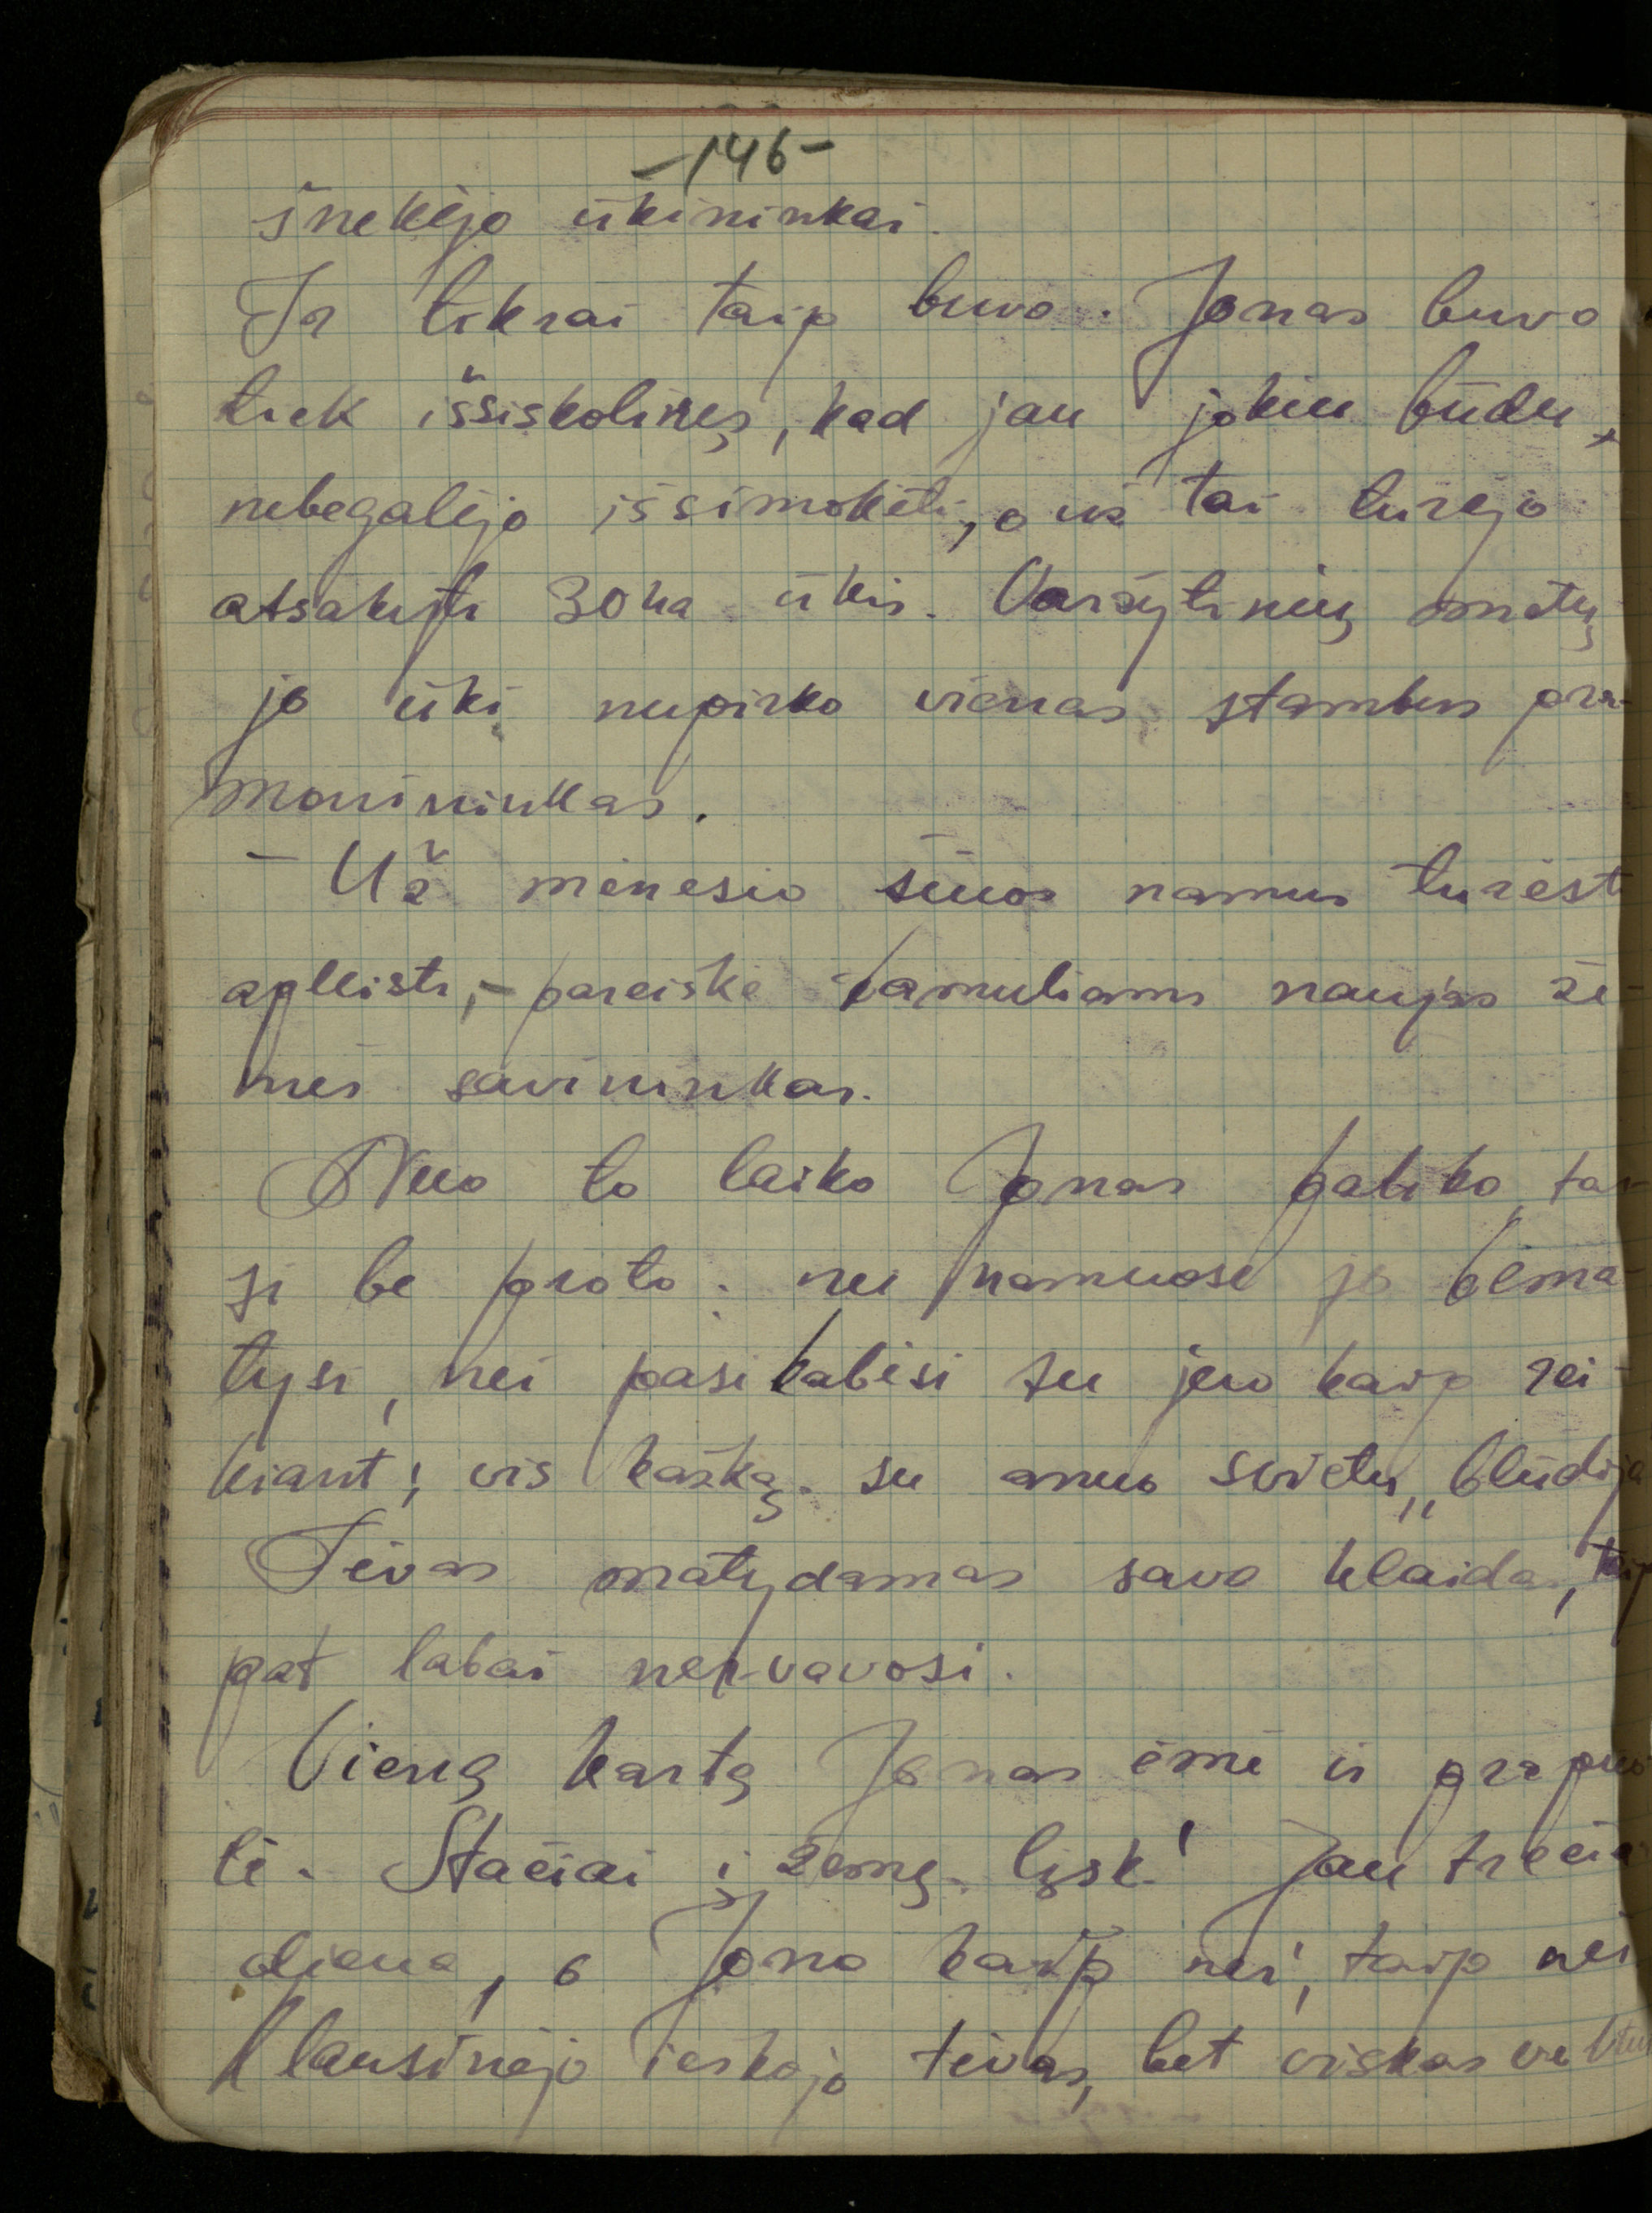 -146-
šnekėjo ūkininkai.
Ir tikrai taip buvo. Jonas buvo
tiek išsiskolinęs, kad jau jokiu būdu
nebegalėjo išsimokėti, o už tai turėjo
atsakyti 30 ha ūkis. Varžytinių metu
jo ūkį nupirko vienas stambus pra-
monininkas.
- Už mėnesio šiuos namus turėst
apleisti, - pareiškė Ramuliams naujas že-
mės savininkas.
Nuo to laiko Jonas paliko tar-
si be proto: nei namuose jo bėma-
tysi, nei pasikabėsi su juo kaip rei-
kiant; vis kažką su anuo svietu „blūdija
Tėvas matydamas savo klaidą, taip
pat labai nervavosi.
Vieną kartą Jonas ėmė ir prapuo
lė. Stačiai į žemę lįsk! Jau trečia
diena, o Jono kaip nėr, taip nėr
Klausinėjo ieškojo tėvas, bet viskas veltui